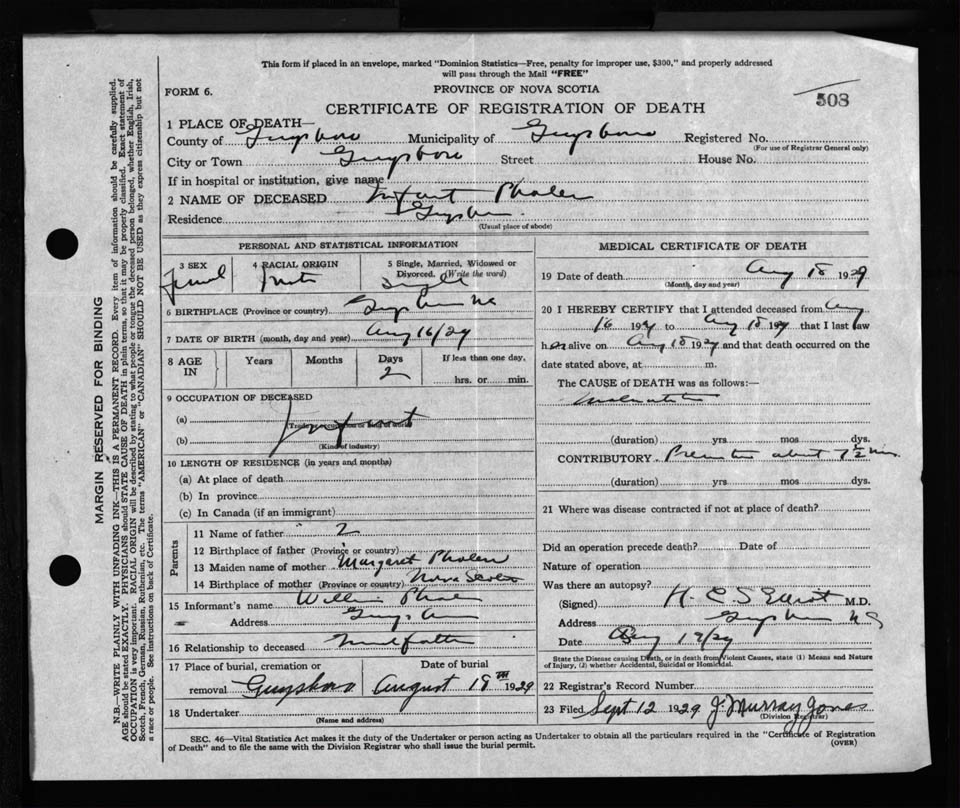 This form if placed in an envelope, marked "Dominion Statistics—Free, penalty for improper use, $300," and properly addressed
will pass through the Mail "FREE"
FORM 6.
PROVINCE OF NOVA SCOTIA
508
CERTIFICATE OF REGISTRATION OF DEATH
1 PLACE OF DEATH—
County of Guysboro Municipality of Guysboro Registered No.
(For use of Registrar General only)
City or Town Guysboro Street House No.
If in hospital or institution, give name
2 NAME OF DECEASED Infant Phalen
Residence Guysboro
(Usual place of abode)
PERSONAL AND STATISTICAL INFORMATION
3 SEX 4 RACIAL ORIGIN 5 Single, Married, Widowed or
Divorced. (Write the word)
Single
6 BIRTHPLACE (Province or country)
7 DATE OF BIRTH (month, day and year) Aug 16/29
8 AGE IN Years Months Days If less than one day,
2 hrs. or min.
9 OCCUPATION OF DECEASED
(a) Infant
(b)
(Kind of industry)
10 LENGTH OF RESIDENCE (in years and months)
(a) At place of death
(b) In province
(c) In Canada (if an immigrant)
Parents
11 Name of father
12 Birthplace of father (Province or country)
13 Maiden name of mother Margaret Phalen
14 Birthplace of mother (Province or country) Nova Scotia
15 Informant's name
Address
16 Relationship to deceased
17 Place of burial, cremation or Date of burial
removal Guysboro August 18TH 1929
18 Undertaker
(Name and address)
MEDICAL CERTIFICATE OF DEATH
19 Date of death Aug 18 1929
(Month, day and year)
20 I HEREBY CERTIFY that I attended deceased from Aug
16 1929 to Aug 18 1929 that I last saw
her alive on Aug 18 1929 and that death occurred on the
date stated above, at m.
The CAUSE OF DEATH was as follows:—
(duration) yrs mos dys.
CONTRIBUTORY about 7½
(duration) yrs mos dys.
21 Where was disease contracted if not at place of death?
Did an operation precede death? Date of
Nature of operation
Was there an autopsy?
(Signed) M.D.
Address
Date
State the Disease causing Death, or in death from Violent Causes, state (1) Means and Nature
of Injury, (2) whether Accidental, Suicidal or Homicidal.
22 Registrar's Record Number
23 Filed Sept 12 1929 J. Murray Jones
(Division Registrar)
SEC. 46—Vital Statistics Act makes it the duty of the Undertaker or person acting as Undertaker to obtain all the particulars required in the "Certificate of Registration
of Death" and to file the same with the Division Registrar who shall issue the burial permit.
(OVER)
MARGIN RESERVED FOR BINDING
N.B.—WRITE PLAINLY WITH UNFADING INK—THIS IS A PERMANENT RECORD. Every item of information should be carefully supplied.
AGE should be stated EXACTLY. PHYSICIANS should STATE CAUSE OF DEATH in plain terms, so that it may be properly classified. Exact statement of
OCCUPATION is very important. RACIAL ORIGIN will be described by stating to what people or tongue the deceased person belonged, whether English, Irish,
Scotch, French, German, Russian, Ruthenian, etc. The terms "AMERICAN" or "CANADIAN" SHOULD NOT BE USED as they express citizenship but not
a race or people. See instructions on back of Certificate.